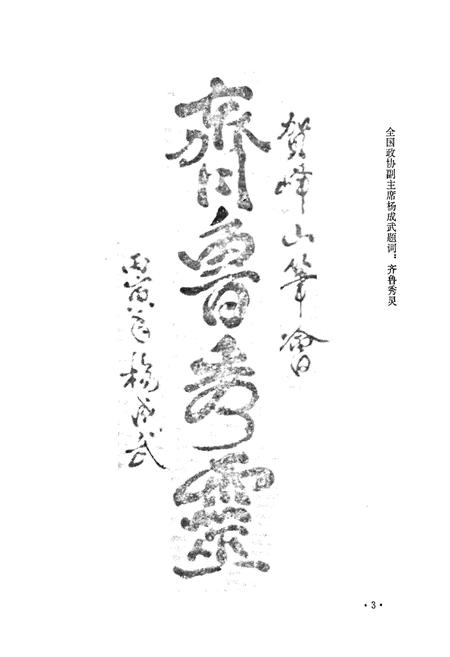 全国政协副主席杨成武题词：齐鲁秀灵
贺峰山笔会
齊魯秀靈
丙寅年杨成武
·3·